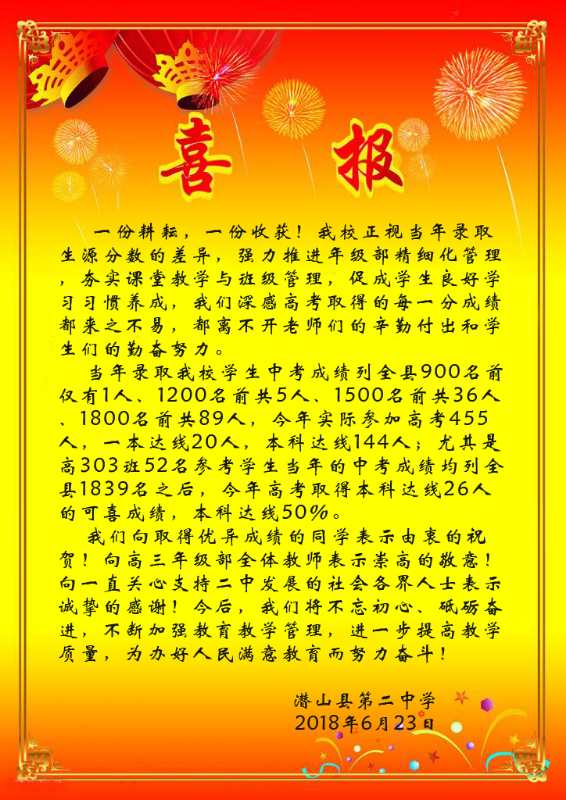 喜报
一份耕耘，一份收获！我校正视当年录取
生源分数的差异，强力推进年级部精细化管理
，夯实课堂教学与班级管理，促成学生良好学
习习惯养成，我们深感高考取得的每一分成绩
都来之不易，都离不开老师们的辛勤付出和学
生们的勤奋努力。
当年录取我校学生中考成绩列全县900名前
仅有1人、1200名前共5人、1500名前共36人
、1800名前共89人，今年实际参加高考455
人，一本达线20人，本科达线144人；尤其是
高303班52名参考学生当年的中考成绩均列全
县1839名之后，今年高考取得本科达线26人
的可喜成绩，本科达线50%。
我们向取得优异成绩的同学表示由衷的祝
贺！向高三年级部全体教师表示崇高的敬意！
向一直关心支持二中发展的社会各界人士表示
诚挚的感谢！今后，我们将不忘初心、砥砺奋
进，不断加强教育教学管理，进一步提高教学
质量，为办好人民满意教育而努力奋斗！
潜山县第二中学
2018年6月23日